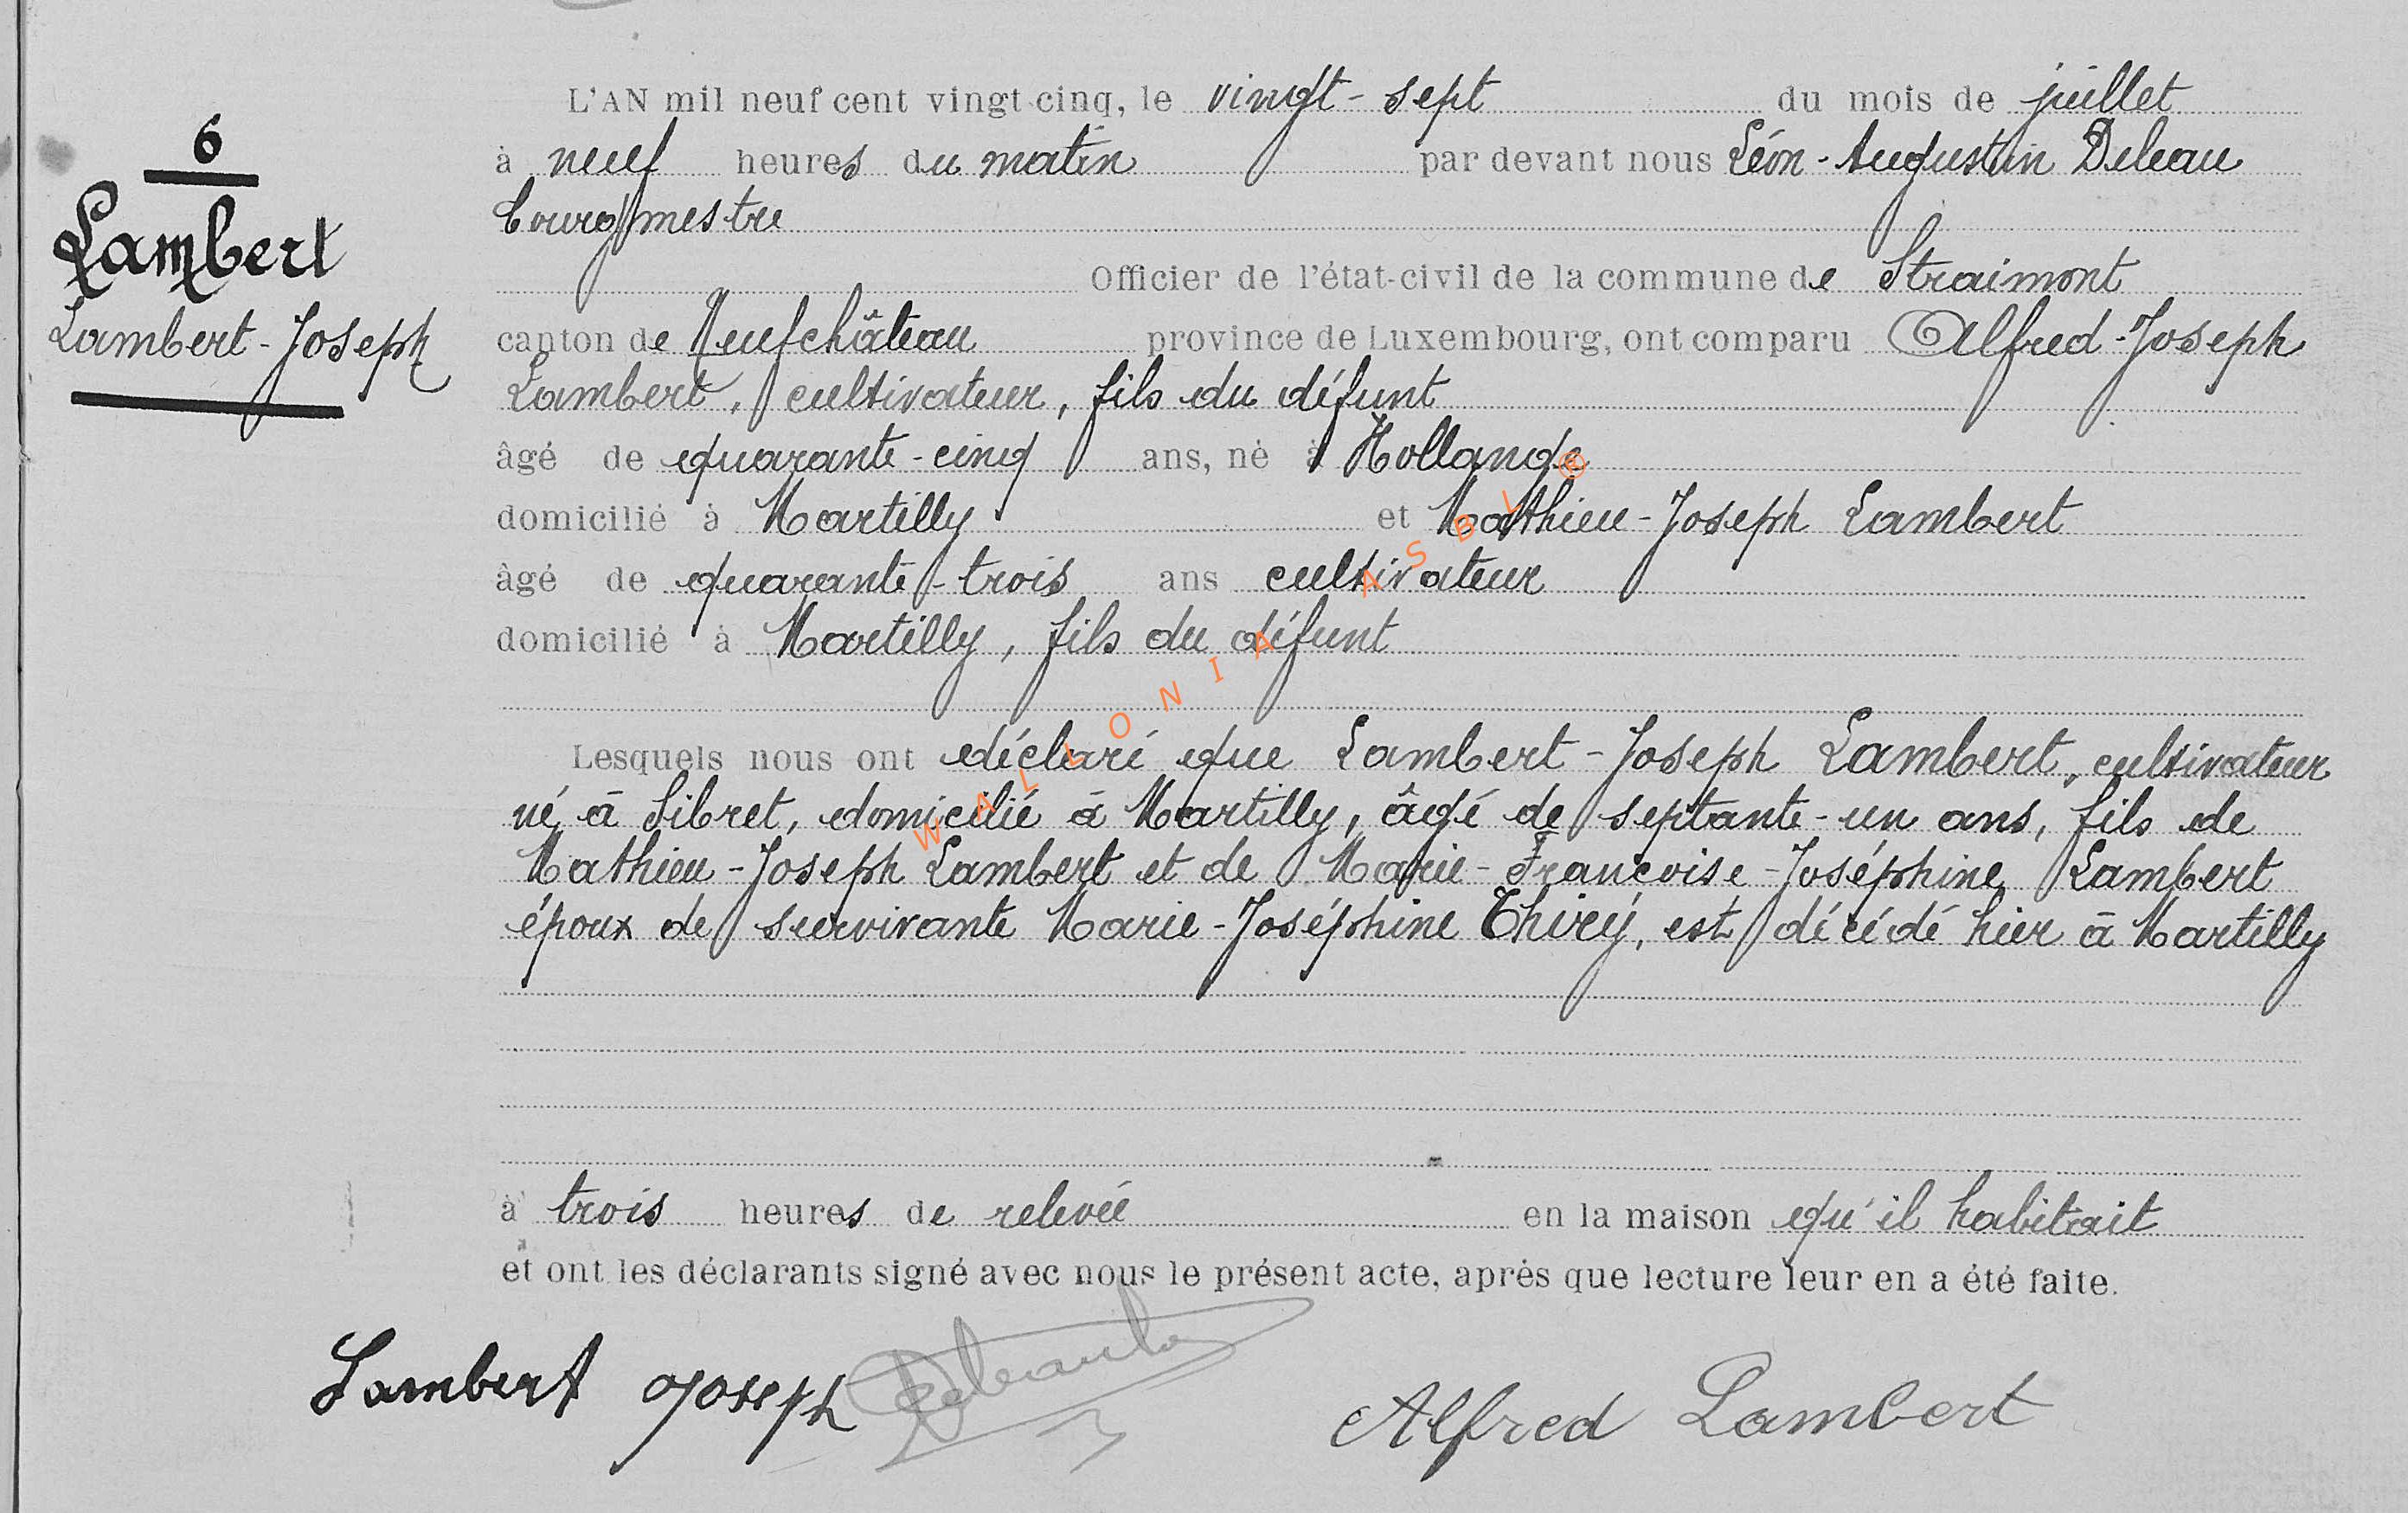 6
Lambert
Lambert-Joseph
L'AN mil neuf cent vingt cinq, le vingt-sept du mois de juillet
à neuf heures du matin par devant nous Léon-Augustin Deleau
bourgmestre
Officier de l'état-civil de la commune de Straimont
canton de Neufchâteau province de Luxembourg, ont comparu Alfred-Joseph
Lambert, cultivateur, fils du défunt
âgé de quarante-cinq ans, né à Hollange
domicilié à Martilly et Mathieu-Joseph Lambert
âgé de quarante-trois ans cultivateur
domicilié à Martilly, fils du défunt
Lesquels nous ont déclaré que Lambert-Joseph Lambert, cultivateur
né à Sibret, domicilié à Martilly, âgé de septante-un ans, fils de
Mathieu-Joseph Lambert et de Marie-Françoise-Joséphine Lambert
époux de survivante Marie-Joséphine Thiry, est décédé hier à Martilly
à trois heures de relevée en la maison qu'il habitait
et ont les déclarants signé avec nous le présent acte, après que lecture leur en a été faite.
Lambert Joseph
Alfred Lambert
WALLONIA ASBL ®